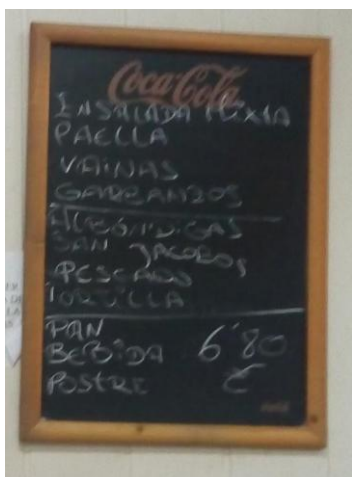 Coca-Cola
ENSALADA MIXTA
PAELLA
VAINAS
GARBANZOS
ALBÓNDIGAS
SAN JACOBOS
PESCADO
TORTILLA
PAN
BEBIDA 6'80
POSTRE €